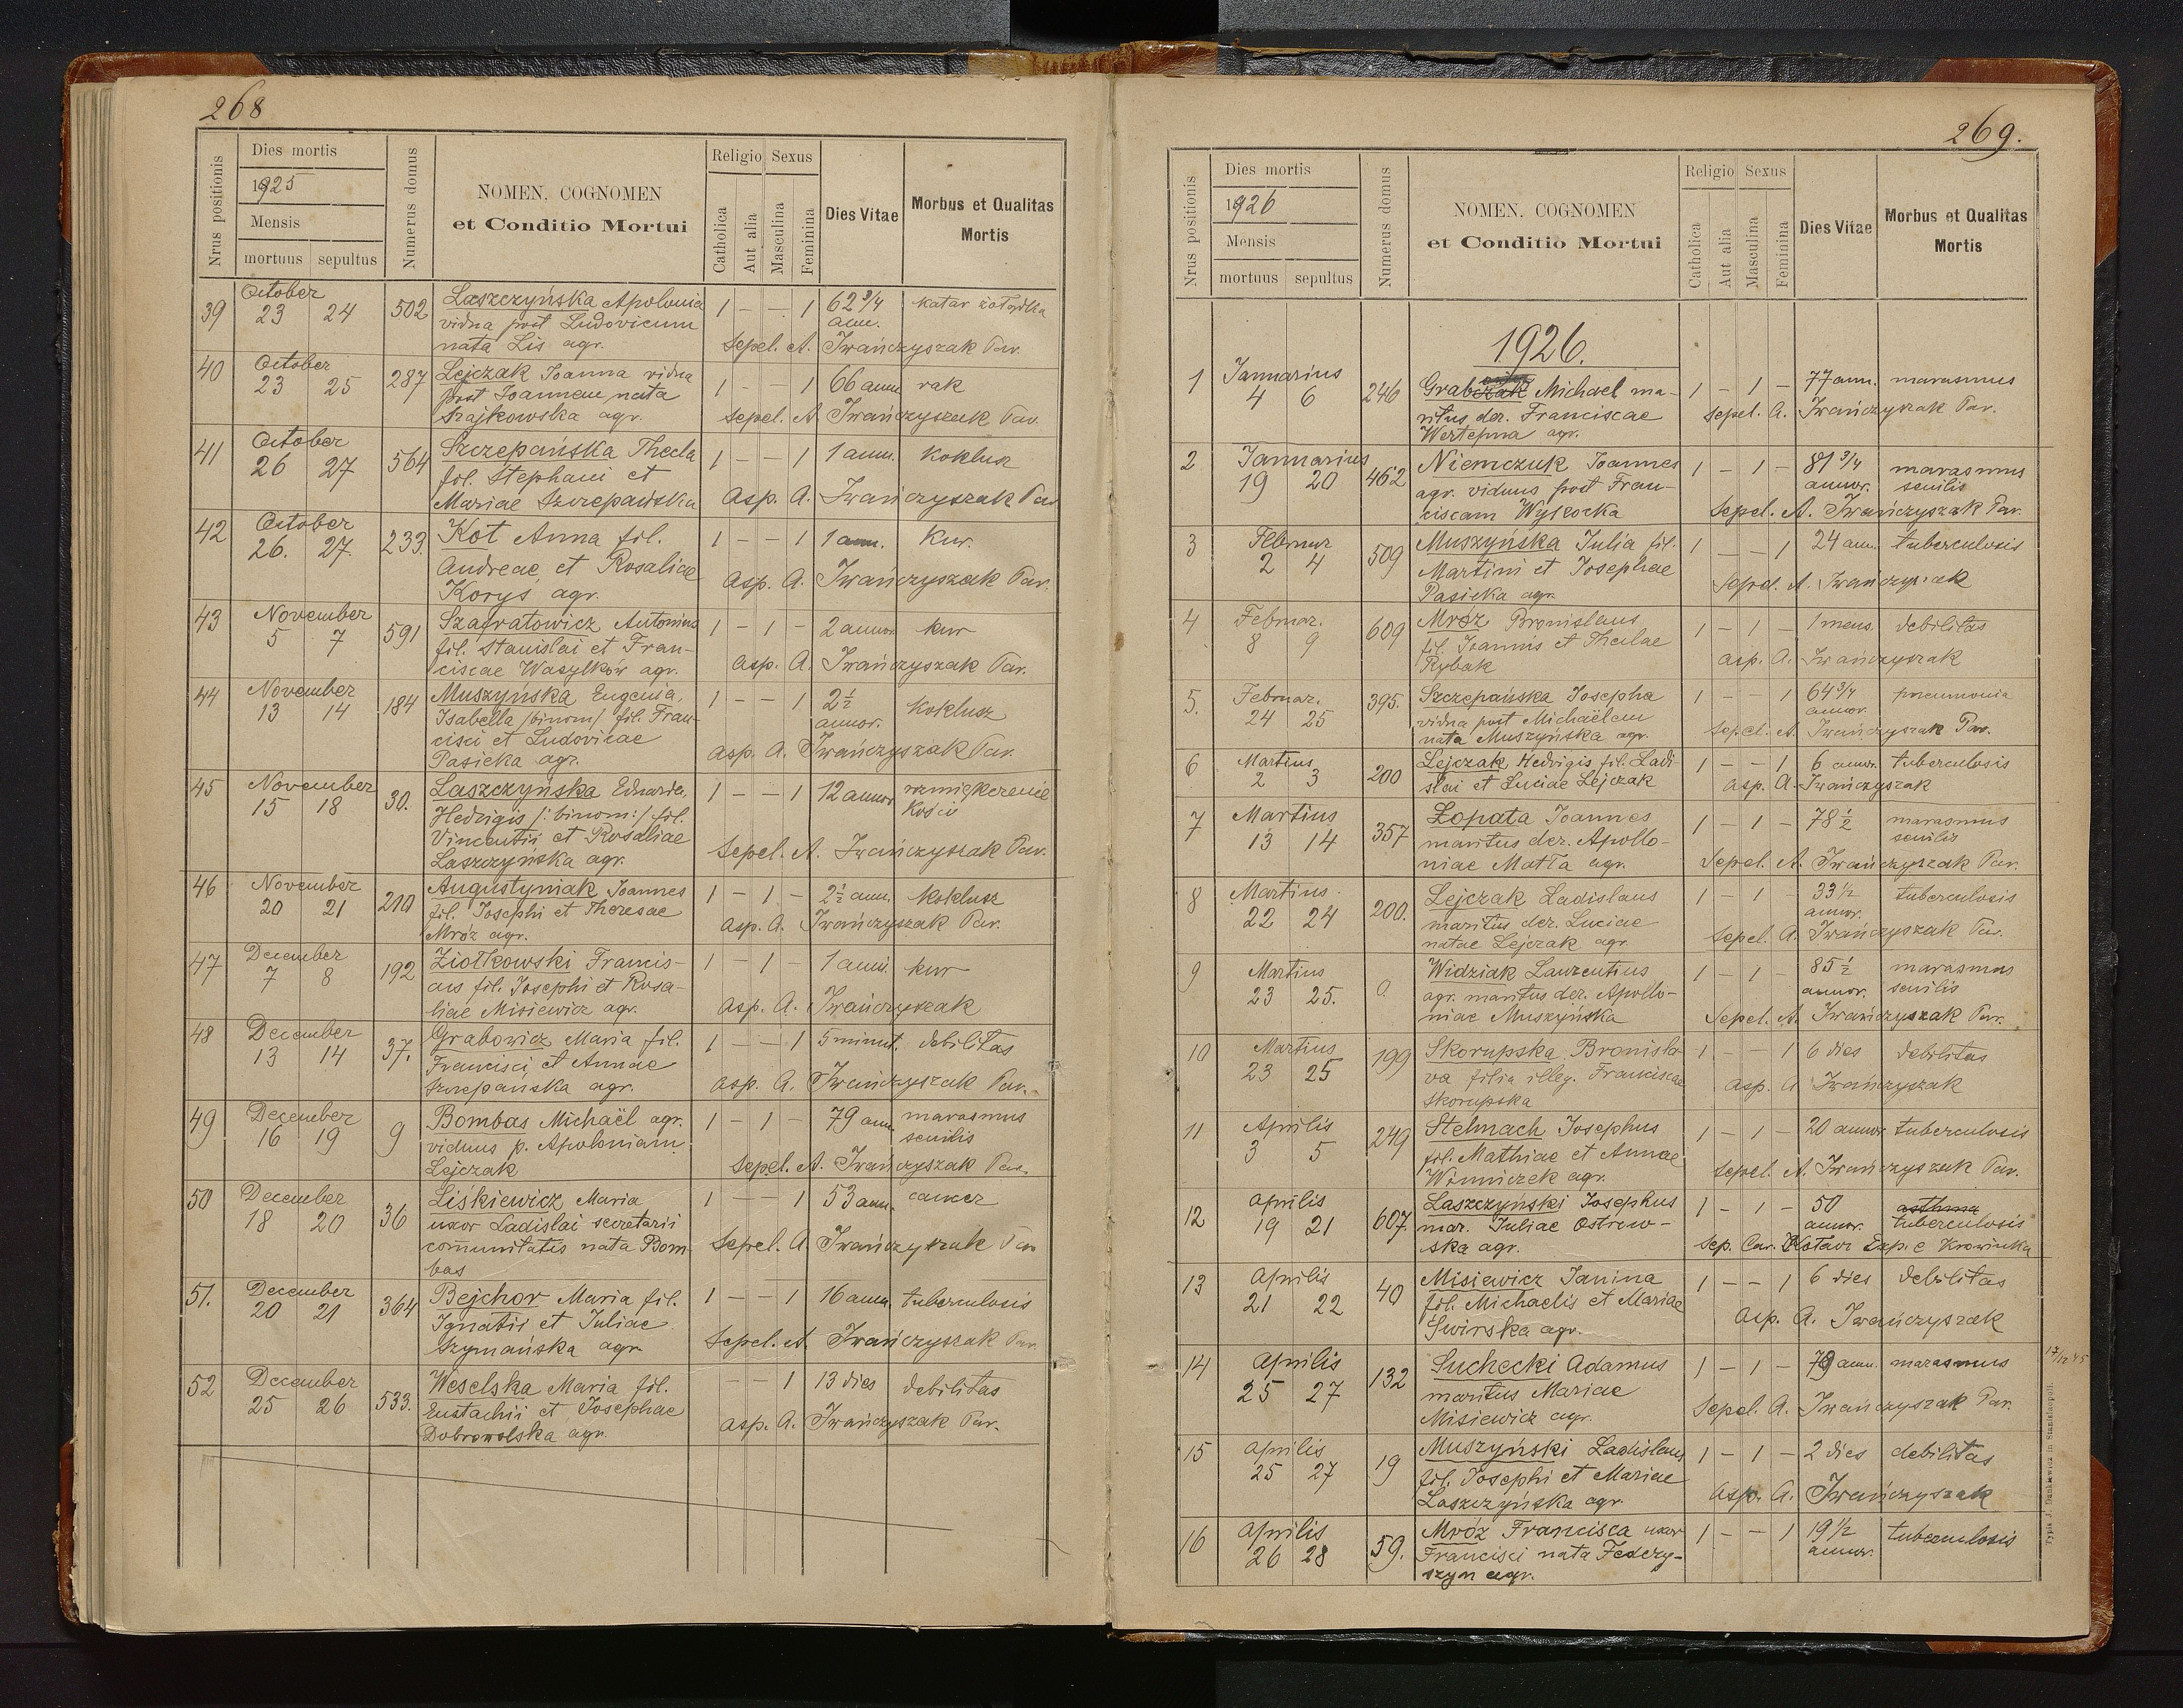 268
Nrus positionis
Dies mortis
1925
Mensis
mortuus sepultus
Numerus domus
NOMEN, COGNOMEN
et Conditio Mortui
Religio Sexus
Catholica
Aut alia
Masculina
Feminina
Dies Vitae
Morbus et Qualitas
Mortis
39 October 23 24 502 Laszczyńska Apolonia 1 – – 1 62 3/4 ann. katar żołądka
vidua post Ludovicum
nata Lis agr. Sepel. A. Iwańczyszak Par.
40 October 23 25 287 Lejczak Joanna vidua 1 – 1 66 ann. rak
post Joannem nata
Szajkowska agr. Sepel. A. Iwańczyszak Par.
41 October 26 27 564 Szczepańska Thecla 1 – – 1 1 ann. Koklusz
fil. Stephani et
Mariae Szczepańska Asp. A. Iwańczyszak Par
42 October 26. 27. 233. Kot Anna fil. 1 – – 1 1 ann. Kur.
Andreae et Rosaliae
Korys agr. Asp. A. Iwańczyszak Par.
43 November 5 7 591 Szafratowicz Antonius 1 – 1 – 2 annor. kur
fil. Stanislai et Fran-
ciscae Wasylków agr. Asp. A. Iwańczyszak Par.
44 November 13 14 184 Muszyńska Eugenia, 1 – – 1 2 1/2 annor. Koklusz
Isabella /binom/ fil. Fran-
cisci et Ludovicae
Pasieka agr. Asp. A. Iwańczyszak Par.
45 November 15 18 30. Laszczyńska Eduarda, 1 – – 1 12 annor. rozmiękczenie
Hedvigis /:binom:/ fil. Kości
Vincentii et Rosaliae
Laszczyńska agr. Sepel. A. Iwańczyszak Par.
46 November 20 21 210 Augustyniak Joannes 1 – 1 – 2 1/2 ann. Koklusz
fil. Josephi et Theresae
Mróz agr. Asp. A. Iwańczyszak Par.
47 December 7 8 192 Ziołkowski Francis- 1 – 1 – 1 anni. kur
cus fil. Josephi et Rosa-
liae Misiewicz agr. Asp. A. Iwańczyszak
48 December 13 14 37. Grabowicz Maria fil. 1 – – 1 5 minut. debilitas
Francisci et Annae
Szczepańska agr. Asp. A. Iwańczyszak Par.
49 December 16 19 9 Bombas Michaël agr. 1 – 1 – 79 ann. marasmus
viduus p. Apoloniam senilis
Lejczak Sepel. A. Iwańczyszak Par.
50 December 18 20 36 Liśkiewicz Maria 1 – – 1 53 ann. cancer
uxor Ladislai secretarii
communitatis nata Bom Sepel. A. Iwańczyszak Par
bas
51. December 20 21 364 Bejchor Maria fil. 1 – – 1 16 ann. tuberculosis
Ignatii et Juliae
Szymańska agr. Sepel. A. Iwańczyszak Par
52 December 25 26 533. Weselska Maria fil. – – 1 13 dies debilitas
Eustachii et Josephae
Dobrowolska agr. Asp. A. Iwańczyszak Par.
269.
Nrus positionis
Dies mortis
1926
Mensis
mortuus sepultus
Numerus domus
NOMEN, COGNOMEN
et Conditio Mortui
Religio Sexus
Catholica
Aut alia
Masculina
Feminina
Dies Vitae
Morbus et Qualitas
Mortis
1926.
1 Januarius 4 6 246 Grabczak Michael ma- 1 – 1 – 77 ann. marasmus
ritus der. Franciscae Sepel. A. Iwańczyszak Par.
Wertepna agr.
2 Januarius 19 20 462 Niemczuk Joannes 1 – 1 – 81 3/4 annor. marasmus
agr. viduus post Fran- senilis
ciscam Wysocka Sepel. A. Iwańczyszak Par.
3 Februar 2 4 509 Muszyńska Julia fil. 1 – – 1 24 ann. tuberculosis
Martini et Josephae
Pasieka agr. Sepel. A. Iwańczyszak
4 Februar. 8 9 609 Mróz Bronislaus 1 – 1 – 1 mens. debilitas
fil. Joannis et Theclae
Rybak Asp. A. Iwańczyszak
5. Februar. 24 25 395. Szczepańska Josepha 1 – – 1 64 3/4 annor. pneumonia
vidua post Michaëlem
nata Muszyńska agr. Sepel. A. Iwańczyszak Par.
6 Martius 2 3 200 Lejczak Hedvigis fil. Ladi- 1 – – 1 6 annor. tuberculosis
slai et Luciae Lejczak Asp. A. Iwańczyszak
7 Martius 13 14 357 Łopata Joannes 1 – 1 – 78 1/2 marasmus
maritus der. Apollo- senilis
niae Matła agr. Sepel. A. Iwańczyszak Par.
8 Martius. 22 24 200. Lejczak Ladislaus 1 – 1 – 33 1/2 annor. tuberculosis
maritus der. Luciae
natae Lejczak agr. Sepel. A. Iwańczyszak Par.
9 Martius 23 25. 0. Widziak Laurentius 1 – 1 – 85 1/2 annor. marasmus
agr. maritus der. Apollo- senilis
niae Muszyńska Sepel. A. Iwańczyszak Par.
10 Martius 23 25 199 Skorupska Bronisla- 1 – – 1 6 dies debilitas
va filia illeg. Franciscae
Skorupska Asp. A Iwańczyszak
11 Aprilis 3 5 249 Stelmach Josephus 1 – 1 – 20 annor. tuberculosis
fil. Mathiae et Annae
Winniczek agr. Sepel. A. Iwańczyszak Par.
12 Aprilis 19 21 607. Laszczyński Josephus 1 – 1 – 50 annor. asthma
mar. Juliae Ostrow- tuberculosis
ska agr. Sep. Car. Kotarz Exp. e Krowinka
13 Aprilis 21 22 40 Misiewicz Janina 1 – – 1 6 dies debilitas
fil. Michaelis et Mariae
Świrska agr. Asp. A. Iwańczyszak
14 Aprilis 25 27 132 Suchecki Adamus 1 – 1 – 79 ann. marasmus
maritus Mariae
Misiewicz agr. Sepel. A. Iwańczyszak Par.
15 Aprilis 25 27 19 Muszyński Ladislaus 1 – 1 – 2 dies debilitas
fil. Josephi et Mariae
Laszczyńska agr. Asp. A. Iwańczyszak
16 Aprilis 26 28 59. Mróz Francisca uxor 1 – – 1 19 1/2 annor. tuberculosis
Francisci nata Federy-
szyn agr.
Typis J. Dankiewicz in Stanislaopoli.